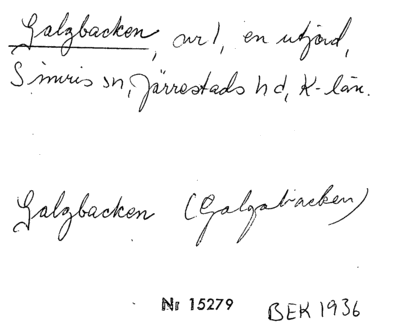 Galgbacken, avr 1, en utjord,
Simris sn, Järrestads hd, K-län.
Galgbacken (Galgabacken)
Nr 15279 BEK 1936